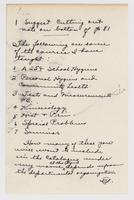 1 Suggest cutting out
note on bottom of p 81
The following are some
of the courses I have
taught:
1 A.D.T. School Hygiene
2 Personal Hygiene and
Community health
3 Tests and Measurements
PE
4 Kinesiology
5 Hist + Prin
6 Special Problems
7 Seminar
How many of these you
would want to include
in the Catalogue under
my name depends upon
the departmental organization